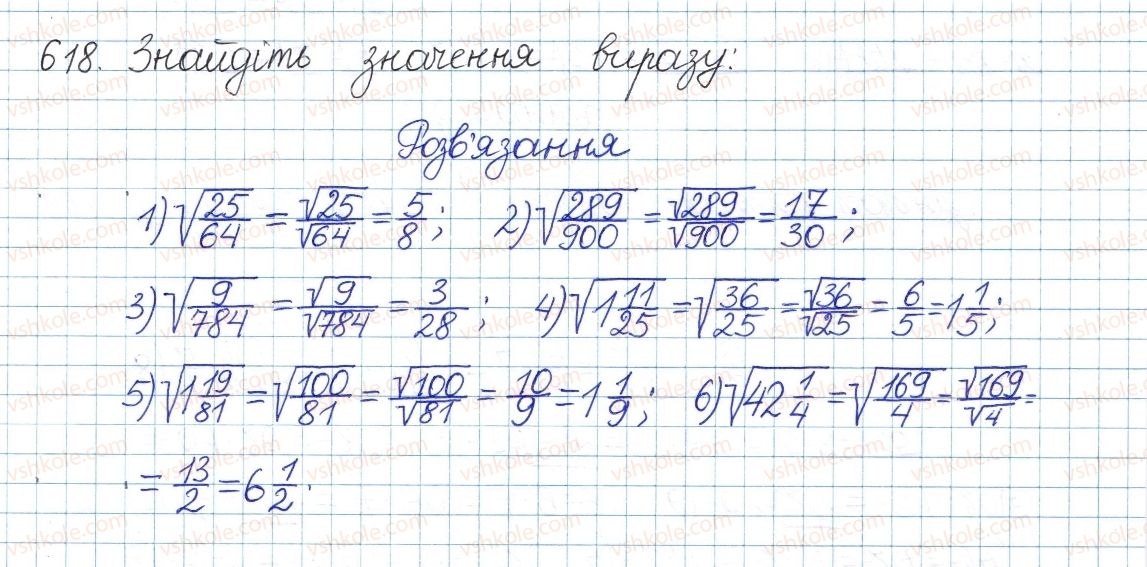 618. Знайдіть значення виразу:
Розв'язання
1) √(25/64) = √25/√64 = 5/8; 2) √(289/900) = √289/√900 = 17/30;
3) √(9/784) = √9/√784 = 3/28; 4) √(1 11/25) = √(36/25) = √36/√25 = 6/5 = 1 1/5;
5) √(1 19/81) = √(100/81) = √100/√81 = 10/9 = 1 1/9; 6) √(42 1/4) = √(169/4) = √169/√4 =
= 13/2 = 6 1/2.
vshkole.com